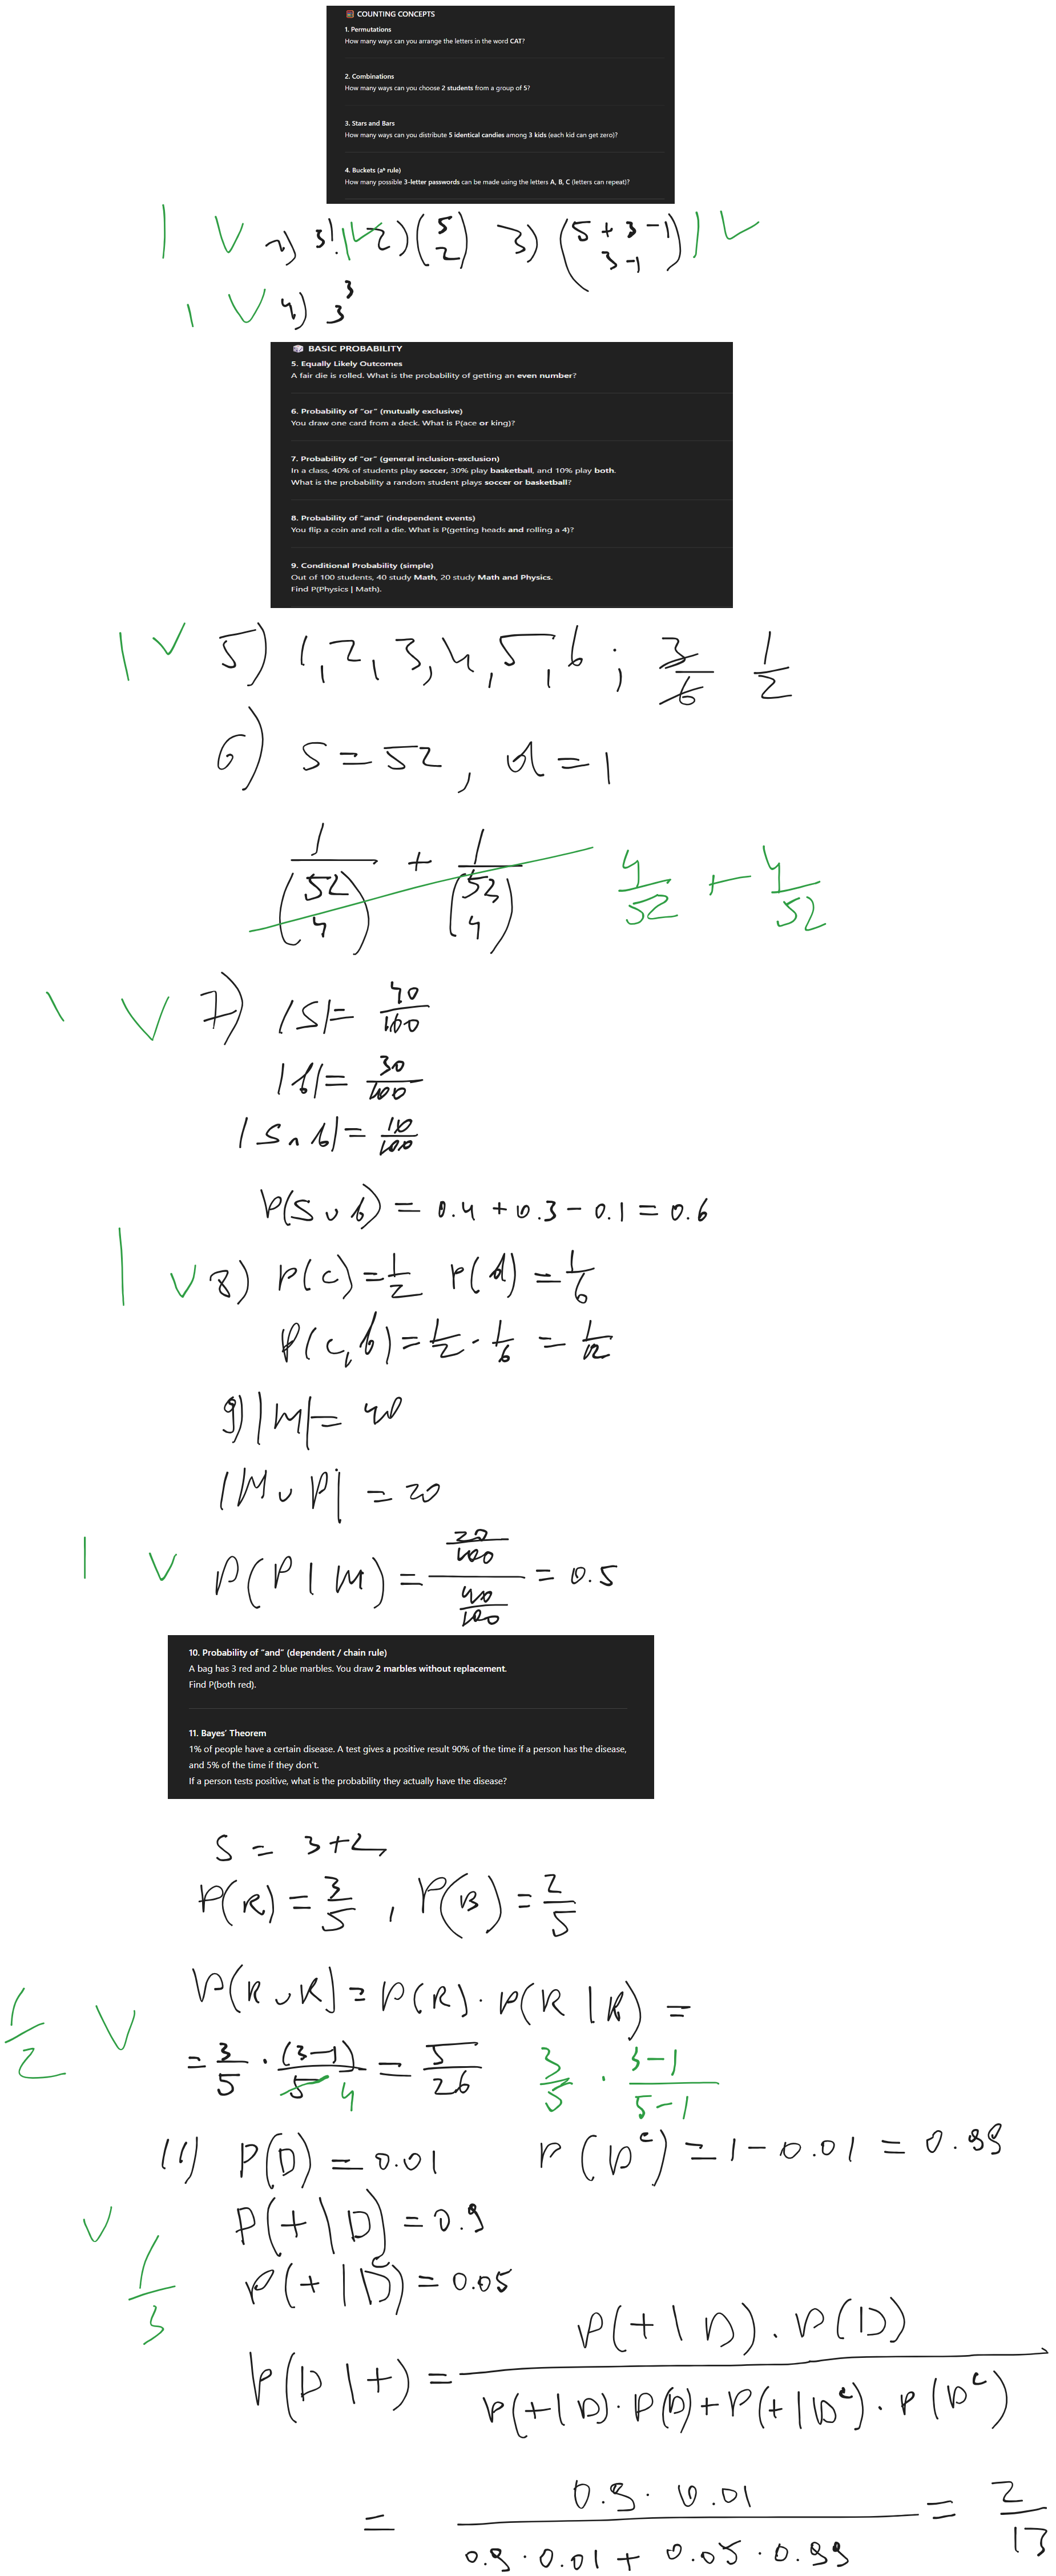 COUNTING CONCEPTS
1. Permutations
How many ways can you arrange the letters in the word CAT?
2. Combinations
How many ways can you choose 2 students from a group of 5?
3. Stars and Bars
How many ways can you distribute 5 identical candies among 3 kids (each kid can get zero)?
4. Buckets (aᵇ rule)
How many possible 3-letter passwords can be made using the letters A, B, C (letters can repeat)?
1 ✓ 3! 1 ✓ 2) (5 2) 3) (5 + 3 - 1 3 - 1) 1 ✓
1 ✓ 4) 3³
BASIC PROBABILITY
5. Equally Likely Outcomes
A fair die is rolled. What is the probability of getting an even number?
6. Probability of "or" (mutually exclusive)
You draw one card from a deck. What is P(ace or king)?
7. Probability of "or" (general inclusion-exclusion)
In a class, 40% of students play soccer, 30% play basketball, and 10% play both.
What is the probability a random student plays soccer or basketball?
8. Probability of "and" (independent events)
You flip a coin and roll a die. What is P(getting heads and rolling a 4)?
9. Conditional Probability (simple)
Out of 100 students, 40 study Math, 20 study Math and Physics.
Find P(Physics | Math).
1 ✓ 5) 1, 2, 3, 4, 5, 6 ; 3/6 1/2
6) S = 52, d = 1
1/(52 4) + 1/(52 4) 4/52 + 4/52
1 ✓ 7) |S| = 40/100
|b| = 30/100
|S ∩ b| = 10/100
P(S ∪ b) = 0.4 + 0.3 - 0.1 = 0.6
1 ✓ 8) P(c) = 1/2 P(d) = 1/6
P(c, b) = 1/2 · 1/6 = 1/12
9) |M| = 40
|M ∪ P| = 20
1 ✓ P(P | M) = (20/100)/(40/100) = 0.5
10. Probability of "and" (dependent / chain rule)
A bag has 3 red and 2 blue marbles. You draw 2 marbles without replacement.
Find P(both red).
11. Bayes' Theorem
1% of people have a certain disease. A test gives a positive result 90% of the time if a person has the disease,
and 5% of the time if they don't.
If a person tests positive, what is the probability they actually have the disease?
S = 3+2
P(R) = 3/5 , P(B) = 2/5
P(R ∪ R) = P(R) · P(R | R) =
1/2 ✓ = 3/5 · (3-1)/5 4 = 5/26 3/5 · (3-1)/(5-1)
11) P(D) = 0.01 P(Dᶜ) = 1 - 0.01 = 0.99
✓ P(+ | D) = 0.9
1/3 P(+ | Dᶜ) = 0.05
P(D | +) = P(+ | D) · P(D) / P(+ | D) · P(D) + P(+ | Dᶜ) · P(Dᶜ)
= 0.9 · 0.01 / 0.9 · 0.01 + 0.05 · 0.99 = 2/13